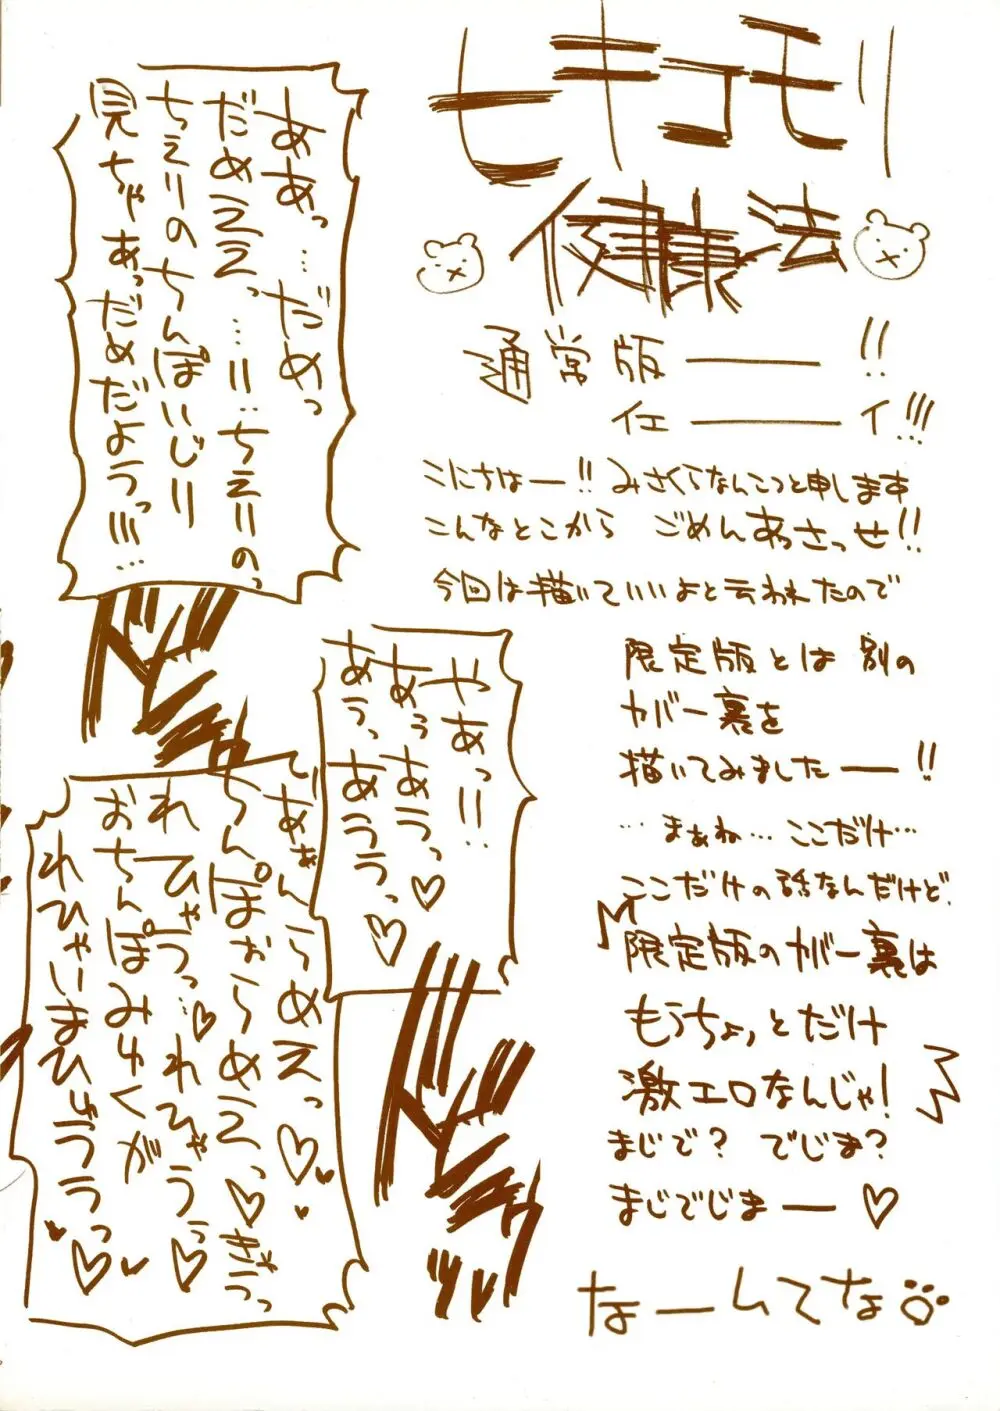 ヒキコモリ
健康法
通常版――!!
イエ――イ!!!
こにちはー!!みさくらなんこつと申します
こんなとこから ごめんあさっせ!!
今回は描いていいよと云われたので
限定版とは別の
カバー裏を
描いてみましたー!!
…まぁね…ここだけ…
ここだけの話なんだけど、
限定版のカバー裏は
もうちょっとだけ
激エロなんじゃ!
まじで? でじま?
まじでじまー♡
なーんてな
ああっ…だめっ
だめええっ…!!…ちぇりのっ
ちぇりのちんぽいじり
見ちゃあっだめだようっ!!!…
ドピュ
やあっ!!
あぅあうっ♡
あうっあううっ♡
ドピュ
ッッ
あぁんらめえっ♡
ちんぽぉらめえっ♡きゃうっ
れひゃうっ…♡れひゃうぅ♡
おちんぽみゆくが
れひゃいまひゅううっ♡